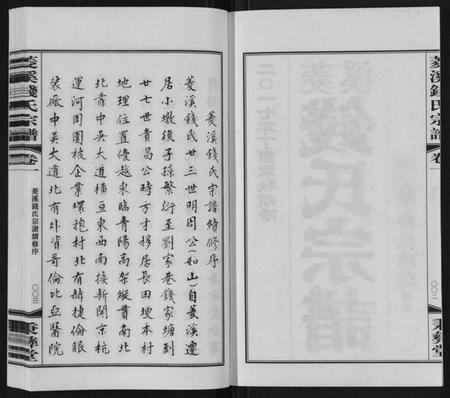 菱溪錢氏宗譜
卷一
〇〇二
秉彝堂
菱溪錢氏宗譜
二〇一七年丁酉
菱溪錢氏宗譜續修序
菱溪錢氏廿三世明因公(如山)自菱溪遷
居小墩後子孫繁衍至劉家巷錢家塘到
廿七世貴昌公時方才移居長田埂本村
地理位置優越東臨青陽高架縱貫南北
北靠中吳大道橫亘東西南接新開京杭
運河周圍被企業環抱村北有赫捷倫眼
裝廠中吳大道北有外資哥倫比亞醫院
菱溪錢氏宗譜
卷一
菱溪錢氏宗譜續修序
〇〇三
秉彝堂